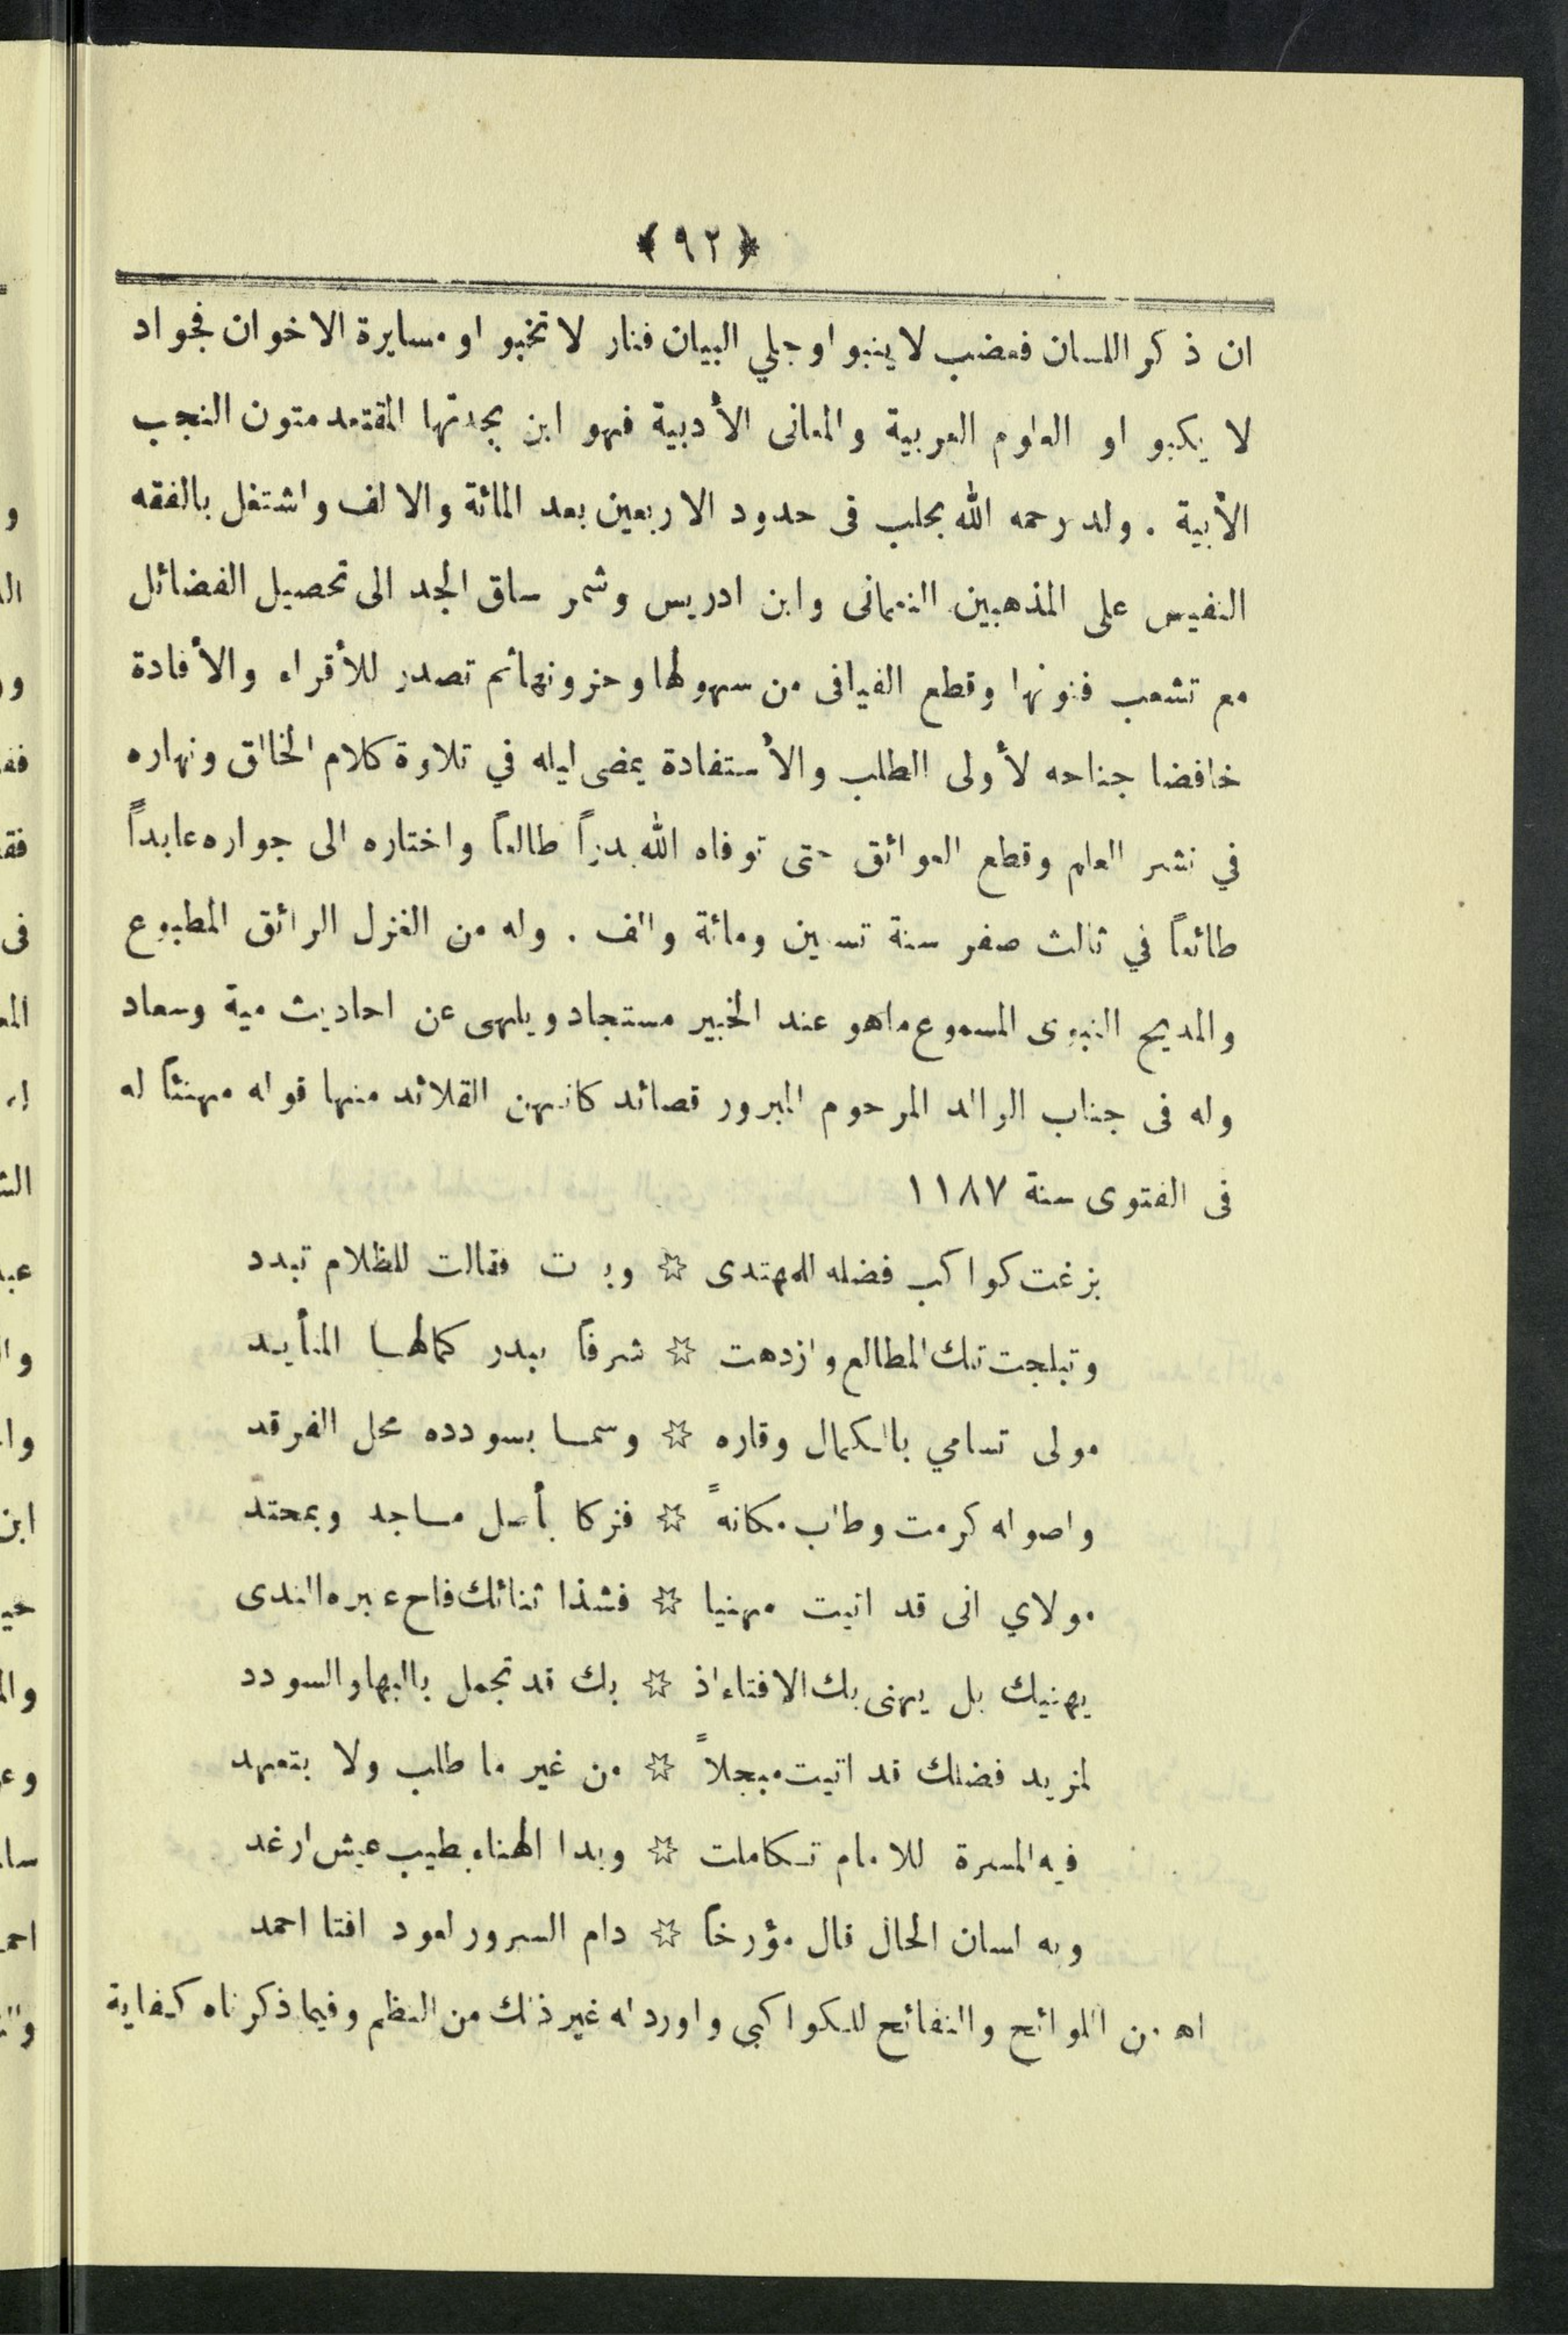 ﴿ ٩٢ ﴾
ان ذكر اللسان فعضب لا ينبو او جلي البيان فنار لا تخبو او مسايرة الاخوان فجواد
لا يكبو او العلوم العربية والمعانى الأدبية فهو ابن بجدتها المقتعد متون النجب
الأبية . ولد رحمه الله بحلب فى حدود الاربعين بعد المائة والالف واشتغل بالفقه
النفيس على المذهبين النعمانى وابن ادريس وشمر ساق الجد الى تحصيل الفضائل
مع تشعب فنونها وقطع الفيافى من سهولها وحزونها ثم تصدر للأقراء والأفادة
خافضا جناحه لأولى الطلب والأستفادة يمضى ليله في تلاوة كلام الخالق ونهاره
في نشر العلم وقطع العوائق حتى توفاه الله بدراً طالعاً واختاره الى جواره عابداً
طائعاً في ثالث صفر سنة تسعين ومائة والف . وله من الغزل الرائق المطبوع
والمديح النبوى المسموع ماهو عند الخبير مستجاد ويلهى عن احاديث مية وسعاد
وله فى جناب الوالد المرحوم المبرور قصائد كانهن القلائد منها قوله مهنئاً له
فى الفتوى سنة ١١٨٧
بزغت كواكب فضله للمهتدى ☆ وبدت فقالت للظلام تبدد
وتبلجت تلك المطالع وازدهت ☆ شرفاً ببدر كمالها المتأيد
مولى تسامي بالكمال وقاره ☆ وسما بسودده محل الفرقد
واصوله كرمت وطاب مكانةً ☆ فزكا بأصل ماجد وبمحتد
مولاي انى قد اتيت مهنيا ☆ فشذا ثنائك فاح عبره الندى
يهنيك بل يهنى بك الافتاء اذ ☆ بك قد تجمل بالبها والسودد
لمزيد فضلك قد اتيت مبجلاً ☆ من غير ما طلب ولا بتعهد
فيه المسرة للامام تكاملت ☆ وبدا الهناء بطيب عيش ارغد
وله لسان الحال قال مؤرخاً ☆ دام السرور لعود افتا احمد
اه من اللوائح والنفائح للكواكبى واورد له غير ذلك من النظم وفيما ذكرناه كفاية